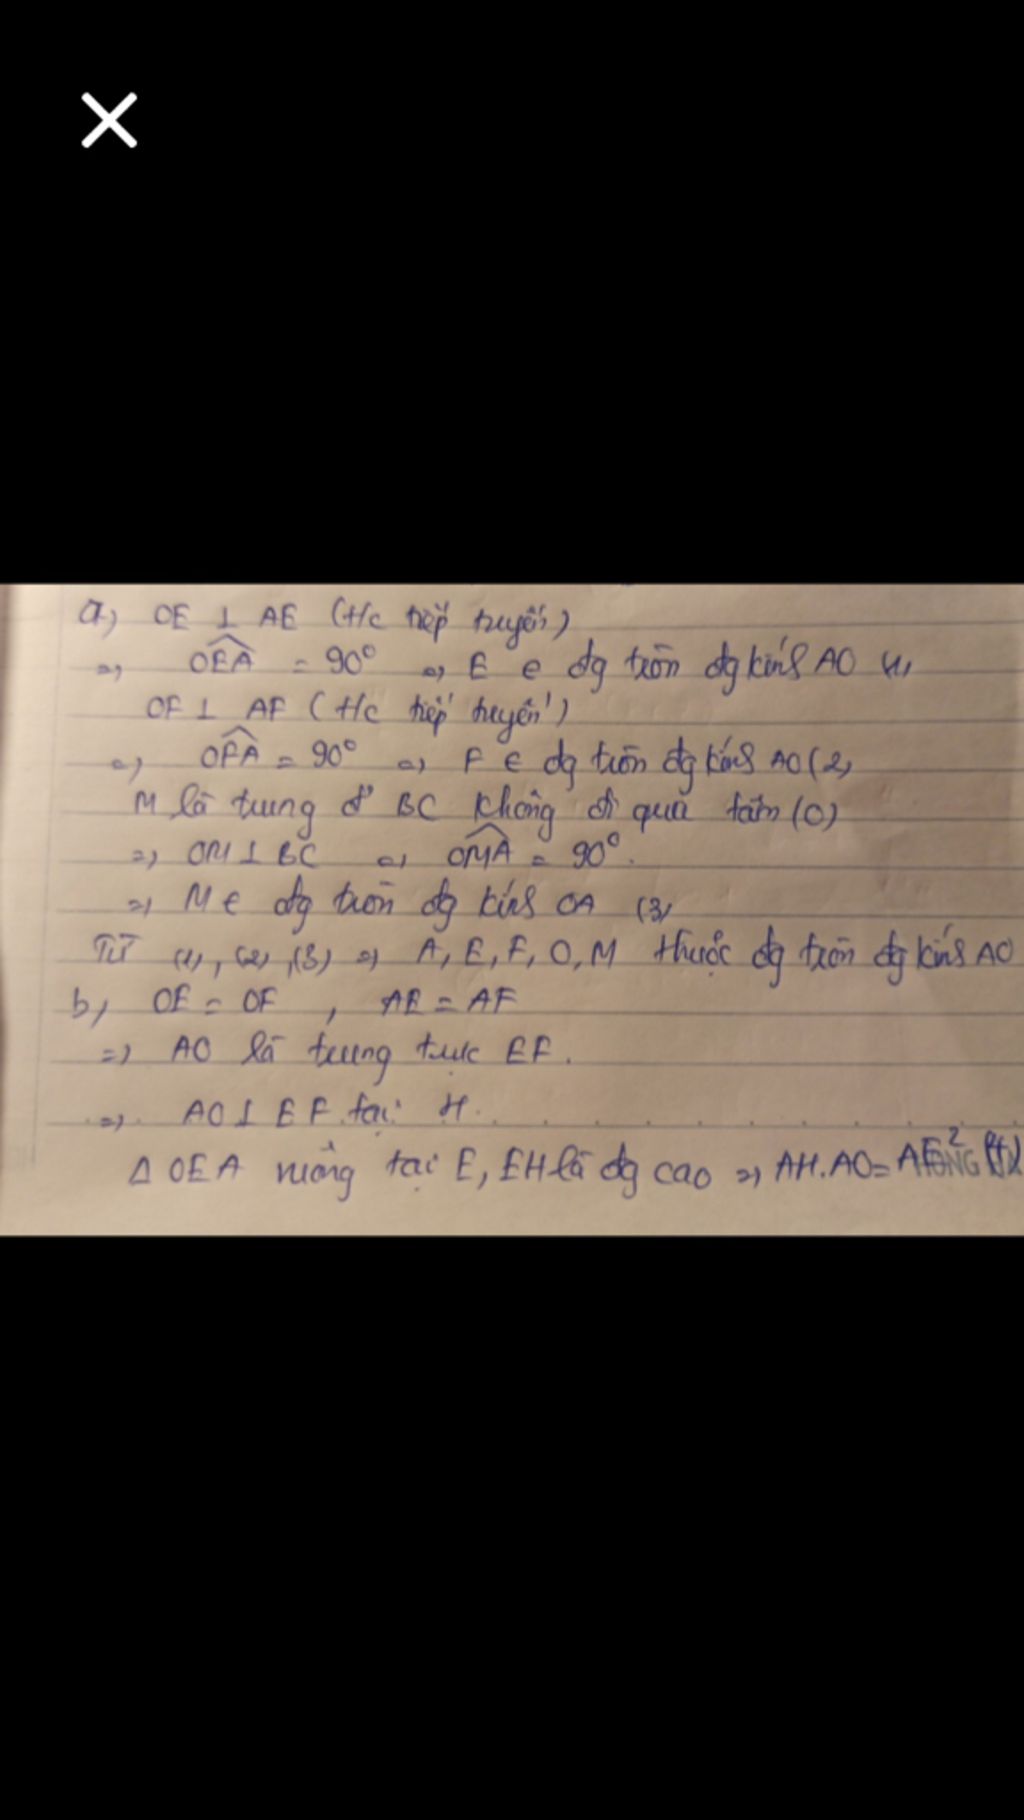 a) OE ⊥ AE (t/c tiếp tuyến)
=> OEA = 90° => E ∈ đg tròn đg kính AO (1)
OF ⊥ AF (t/c tiếp tuyến)
=> OFA = 90° => F ∈ đg tròn đg kính AO (2)
M là trung đ' BC không đi qua tâm (O)
=> OM ⊥ BC => OMA = 90°.
=> M ∈ đg tròn đg kính OA (3)
Từ (1), (2), (3) => A, E, F, O, M thuộc đg tròn đg kính AO
b) OE = OF , AE = AF
=> AO là trung trực EF.
=> AO ⊥ EF tại H.
Δ OEA vuông tại E, EH là đg cao => AH.AO = AE²